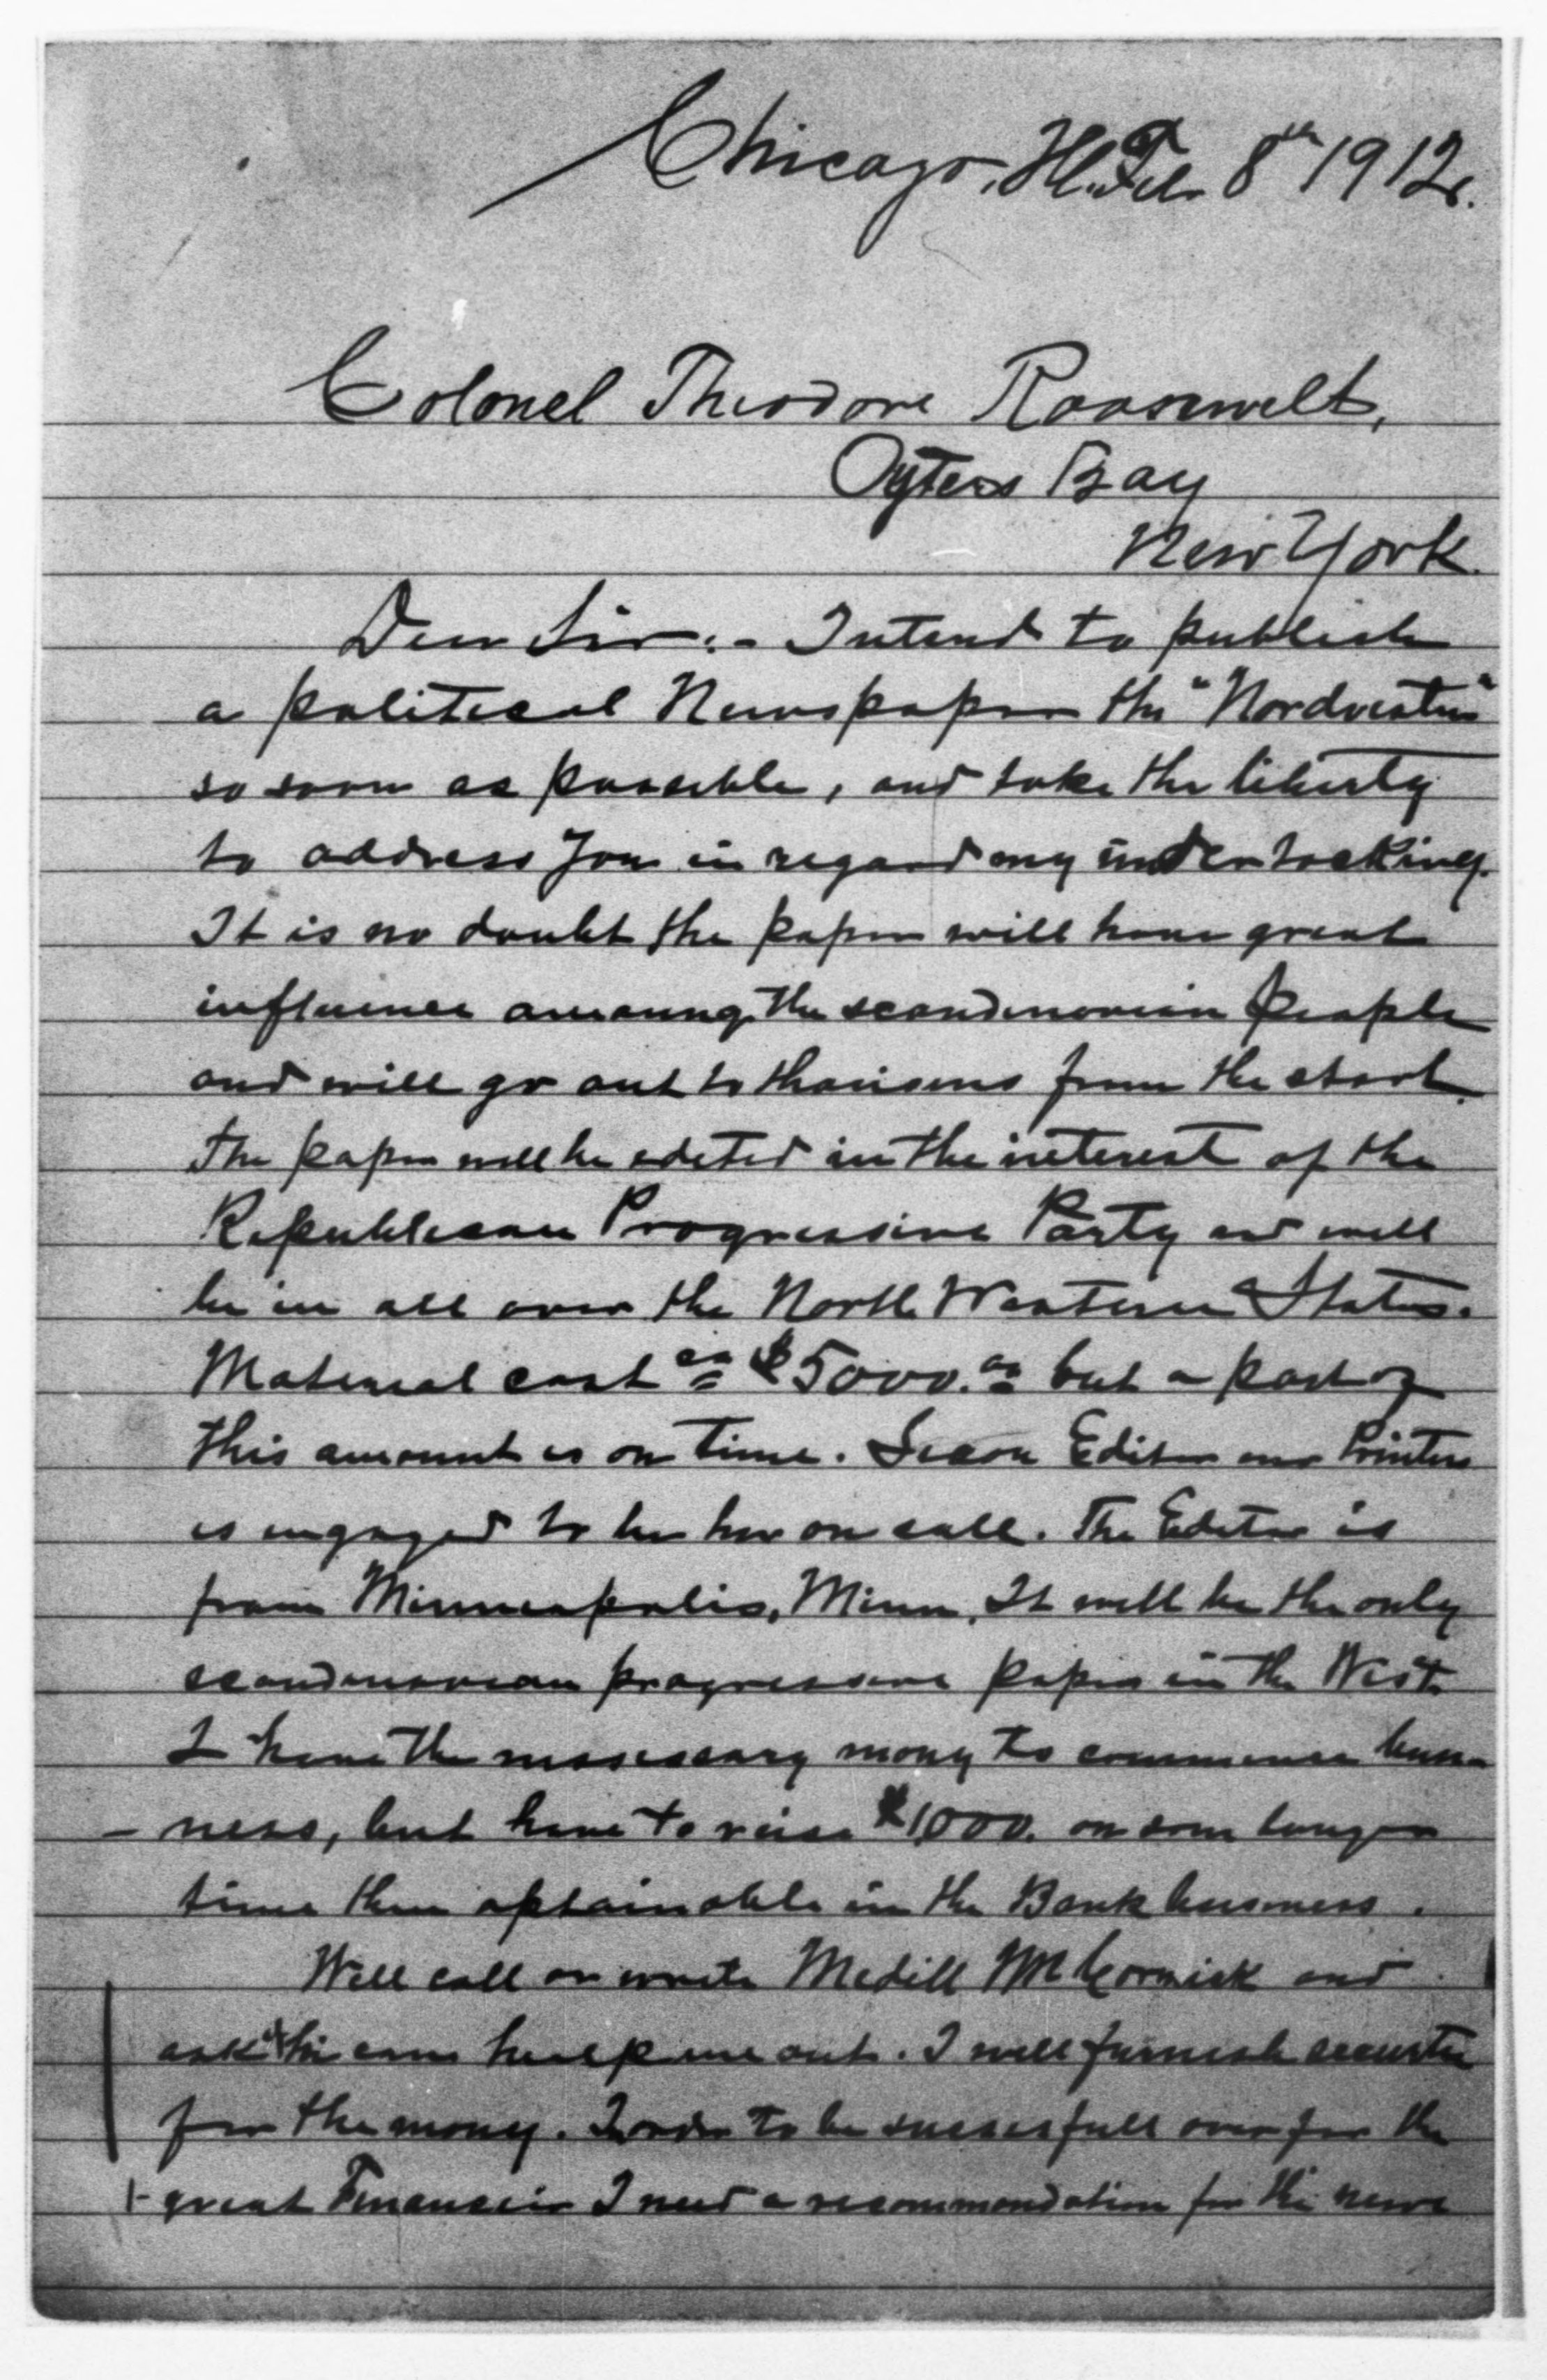 Chicago, Ill. Feb. 8th 1912.
Colonel Theodore Roosewelt,
Oyters Bay
New York.
Dear Sir:- Intend to publish
a political Newspaper the "Nordvesten"
so soon as possible, and take the liberty
to address You in regard my undertacking.
It is no doubt the paper will have great
influence amoung the scandinavian people
and will go out to thousens from the start.
The paper will be edited in the interest of the
Republican Progressive Party and will
be in all over the North Western States.
Material cost ca $5000.00 but a part of
this amount is on time. Editor and Printers
is engaged to be her on call. The Editor is
from Minneapolis, Minn. It will be the only
scandinavian progressive paper in the West.
I have the nessessary mony to commence busi-
-ness, but have to raise $1,000. on som longer
time then optainable in the Bank business.
Will call or write Medill McCormick and
ask if he can heelp me out. I will furnish security
for the mony. Inorder to be succesfull over for the
great Financier I need a recommondation for the newe